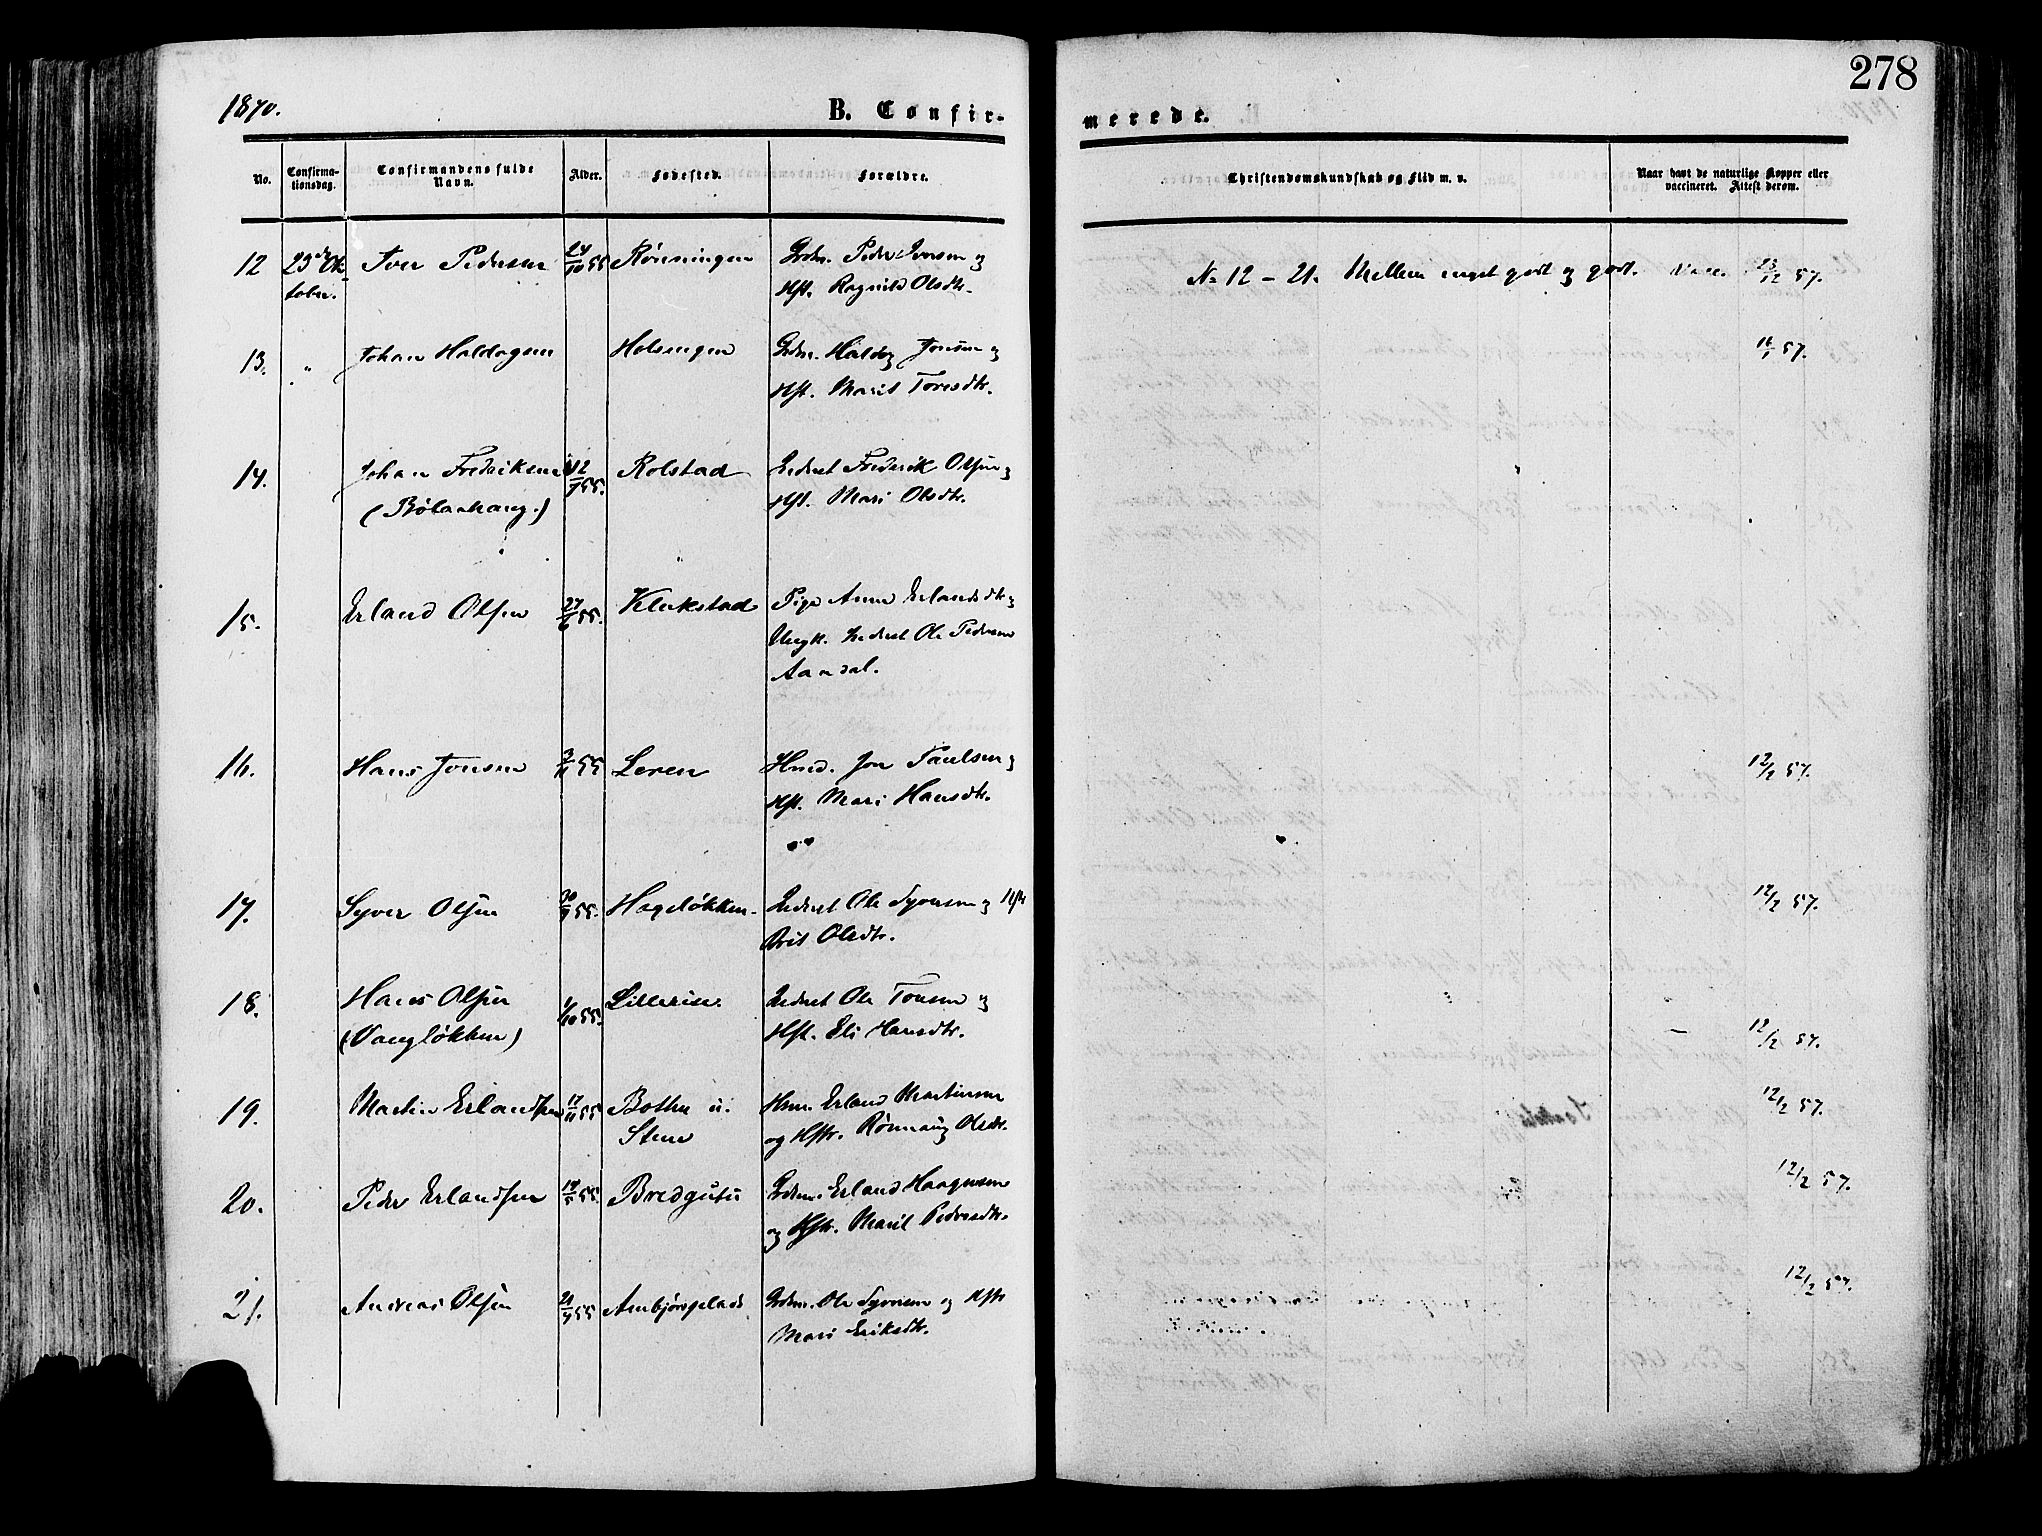 278
1870.
B. Confir-
merede.
No.
Confirma-
tionsdag.
Confirmandens fulde
Navn.
Alder.
Fødested.
Forældre.
Christendomskundskab og Flid m. v.
Naar havt de naturlige Kopper eller
vaccineret. Attest derom.
12 23de Ok- Iver Pedersen 24/10 55 Rönningen Grdm. Peder Iversen og
tober. Hst. Ragnild Olsdtr.
No 12 - 21. Mellem meget godt og godt. Vacc. 23/12 57.
13. " Johan Haldogsen Holsingen Grdm. Haldog Jonsen og
Hst. Marit Toresdtr.
16/1 57.
14. Johan Fredriksen 12/7 55. Rolstad Inderst Frederik Olsen og
(Böla haug.) Hst. Mari Olsdtr.
15. Erland Olsen 27/6 55. Klukstad Pige Anne Erlandsdtr og
Ungk. Inderst Ole Pedersen
Aandal.
16. Hans Jonsen 3/11 55 Leren Hmd. Jon Paulsen og
Hst. Mari Hansdtr.
12/2 57.
17. Syver Olsen 30/9 55. Hageløkken Inderst Ole Syversen og Hst
Brit Olsdtr.
12/2 57.
18. Hans Olsen 1/10 55. Lillerise Inderst Ole Tonsen og
(Vangløkken) Hst. Eli Hansdtr.
12/2 57.
19. Martin Erlandsen 17/11 55 Bothn u. Hmn. Erland Martinsen
Stene og Hstr. Rönnaug Olsdtr.
12/2 57.
20. Peder Erlandsen 55. Bredgutu Grdm. Erland Haagensen
og Hstr. Marit Pedersdtr.
12/2 57.
21. Andreas Olsen 55 Ambjørgslad Grdm. Ole Syversen og Hstr
Mari Eriksdtr.
12/2 57.